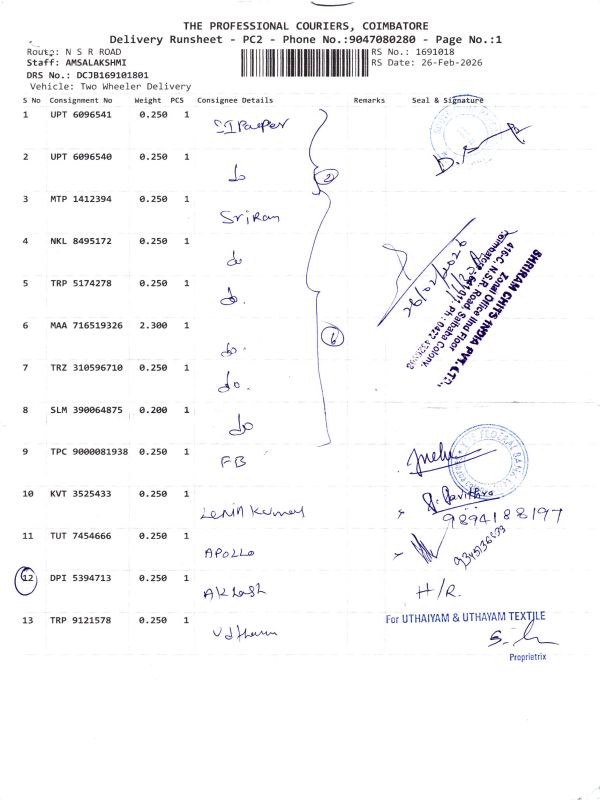 THE PROFESSIONAL COURIERS, COIMBATORE
Delivery Runsheet - PC2 - Phone No.:9047080280 - Page No.:1
Route: N S R ROAD
RS No.: 1691018
Staff: AMSALAKSHMI
RS Date: 26-Feb-2026
DRS No.: DCJB169101801
Vehicle: Two Wheeler Delivery
S No Consignment No Weight PCS Consignee Details Remarks Seal & Signature
1 UPT 6096541 0.250 1
2 UPT 6096540 0.250 1 do
(2)
3 MTP 1412394 0.250 1 Sriram
4 NKL 8495172 0.250 1 do
5 TRP 5174278 0.250 1 do.
6 MAA 716519326 2.300 1 do.
(6)
7 TRZ 310596710 0.250 1 do.
8 SLM 390064875 0.200 1 do
26/02/2026
SHRIRAM CHITS INDIA PVT. LTD.,
Zonal Office IInd Floor
416-C, N.S.R. Road, Saibaba Colony,
9 TPC 9000081938 0.250 1 FB
FEDERAL BANK
10 KVT 3525433 0.250 1 Lenin Kumar
9894188197
11 TUT 7454666 0.250 1 APOLLO
12 DPI 5394713 0.250 1 Akhash H/R.
13 TRP 9121578 0.250 1
For UTHAIYAM & UTHAYAM TEXTILE
Proprietrix